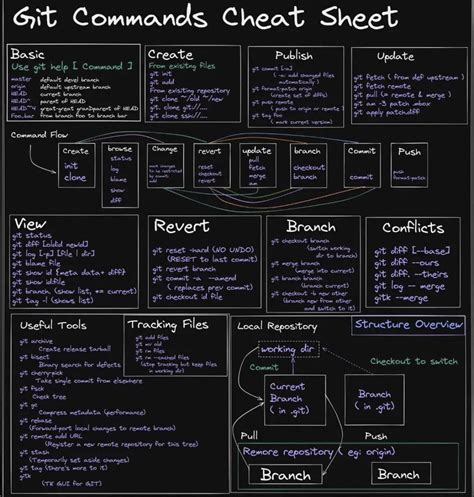 Git Commands Cheat Sheet
Basic
Use git help [ Command ]
master default devel branch
origin default upstream branch
HEAD current branch
HEAD^ parent of HEAD
HEAD~4 great-great grandparent of HEAD
Foo..bar from branch foo to branch bar
Create
From exisiting files
git init
git add
From existing repository
git clone ~/old ~/new
git clone git://...
git clone ssh://...
Publish
git commit [-a]
(-a: add changed files
automatically)
git format-patch origin
(create set of diffs)
git push remote
( push to origin or remote )
git tag foo
( mark current version)
Update
git fetch ( from def upstream )
git fetch remote
git pull (= remote & merge )
git am -3 patch .mbox
git apply patchdiff
Command Flow
Create
init
clone
browse
status
log
blame
show
diff
Change
mark changes
to be restricted
by commit:
add
revert
reset
checkout
revert
update
pull
fetch
merge
am
branch
checkout
branch
Commit
commit
Push
push
format-patch
View
git status
git diff [oldid newid]
git log [-p] [file | dir]
git blame file
git show id (meta data+ diff)
git show id:file
git branch (show list, *= current)
git tag -l (shows list)
Revert
git reset --hard (NO UNDO)
(RESET to last commit)
git revert branch
git commit -a --amend
( replaces prev commit)
git checkout id file
Branch
git checkout branch
(switch working
dir to branch)
git merge branch
(merge into current)
git branch branch
(branch current)
git checkout -b new other
(branch new from other
and switch to it)
Conflicts
git diff [--base]
git diff --ours
git diff --theirs
git log -- merge
gitk --merge
Useful Tools
git archive
Create release tarball
git bisect
Binary search for defects
git cherry-pick
Take single commit from elsewhere
git fsck
Check tree
git gc
Compress metadata (performance)
git rebase
(Forward-port local changes to remote branch)
git remote add URL
(Register a new remote repository for this tree)
git stash
(Temporarily set aside changes)
git tag (there's more to it)
gitk
(TK GUI for GIT)
Tracking Files
git add files
git mv old
git rm files
git rm --cached files
(stop tracking but keep files
in working dir)
Local Repository
Structure Overview
working dir
Commit
Checkout to switch
Current
Branch
( in .git)
Branch
( in .git)
Pull
Push
Remore repository ( eg: origin)
Branch
Branch